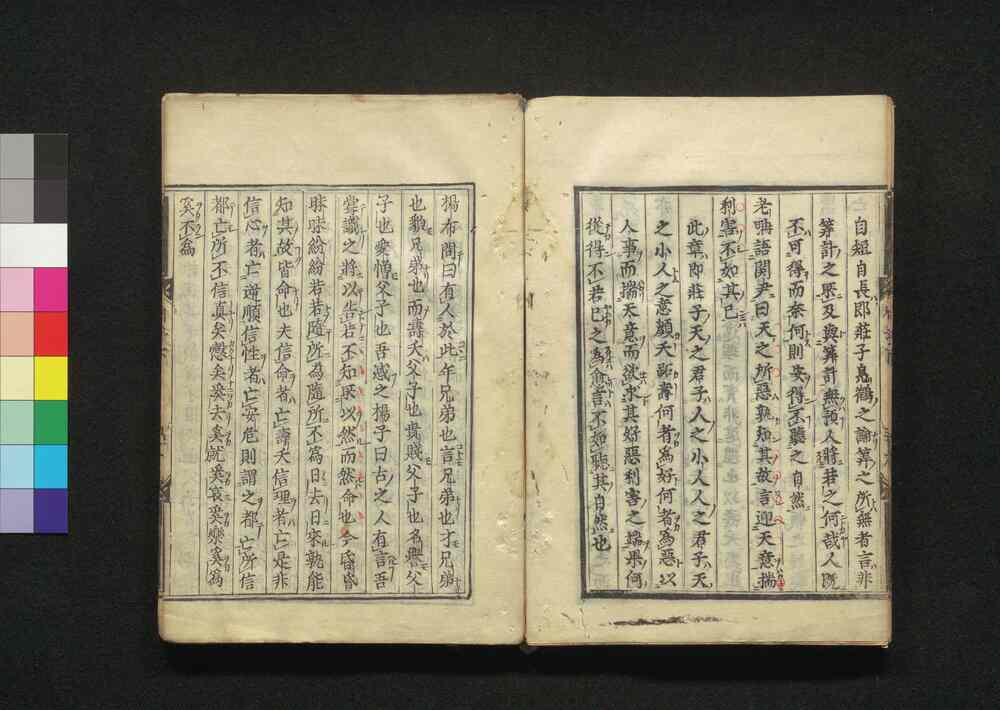 自短自長郎莊子鳧鶴之論筭之所無者言非
筭計之所及與筭計無預人將若之何哉人既
不可得而奈何則安得不聽之自然
老聃語関尹曰天之所惡孰知其故言迎天意揣
利害不如其已
此章即莊子天之君子人之小人人之君子天
之小人之意顏夭跖壽何者為好何者為惡以
人事而揣天意而欲求其好惡利害之端果何
從得不若已之為愈言不如聽其自然也
楊布問曰有人於此年兄弟也言兄弟也才兄弟
也貌兄弟也而壽夭父子也貴賤父子也名譽父
子也愛憎父子也吾惑之楊子曰古之人有言吾
嘗識之將以告若不知所以然而然命也今昏昏
昧昧紛紛若若隨所為隨所不為日去日來孰能
知其故皆命也夫信命者亡壽夭信理者亡是非
信心者亡逆順信性者亡安危則謂之都亡所信
都亡所不信真矣愨矣奚去奚就奚哀奚樂奚為
奚不為